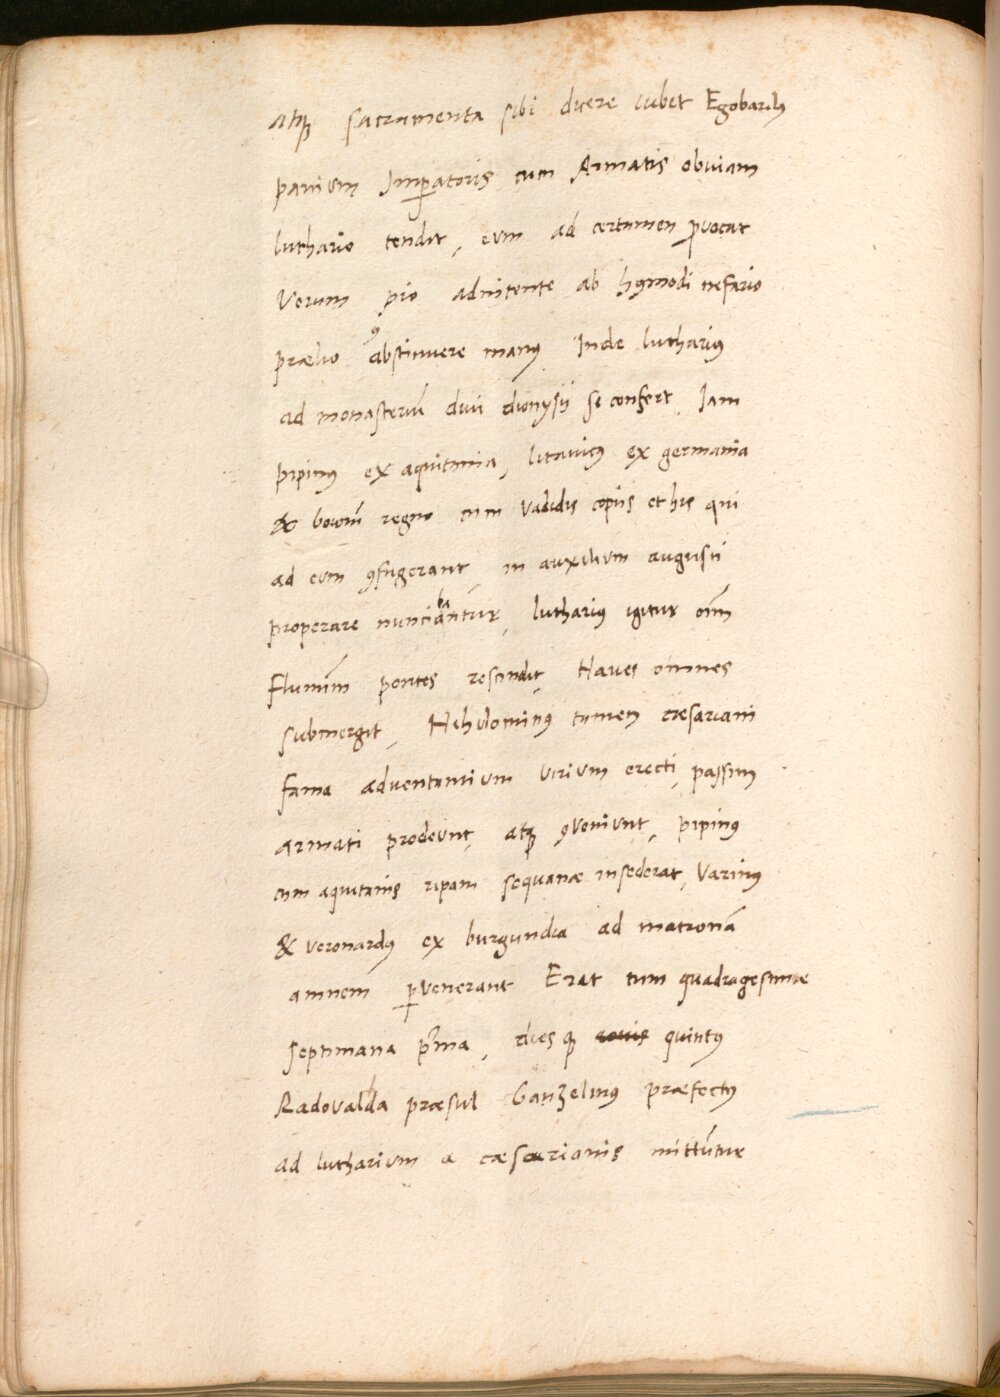 atqꝫ sacramenta sibi dicere iubet Egobardꝰ
parisium Imꝑatoris cum Armatis obuiam
luthario tendit, eum ad certamen ꝓuocat
Verum pio adnitente ab hꝰmodi nefario
prælio abstinuere manꝰ Inde lutharius
ad monasteriū diui dionysii se confert, Iam
pipinꝰ ex aquitania, litauicꝰ ex germania
& boiom̄ regno cum validis copiis et his qui
ad eum ꝯfugerant in auxilium augusti
properare nunciabantur, lutharius igitur om̄
flumin̄ pontes rescindit, Naues omnes
submergit, Nihilominꝰ tamen cæsariani
fama aduentantium virium erecti, passim
armati prodeunt, atqꝫ ꝯveniunt, pipinꝰ
cum aquitanis ripam sequanæ insederat, Varinꝰ
& veronardꝰ ex burgundia ad matronā
amnem ꝑvenerant Erat tum quadragesimæ
septimana pͥma, dies qꝫ quintꝰ
Radovalda præsul Ganzelinꝰ præfectꝰ
ad lutharium a cæsarianis mittūtur